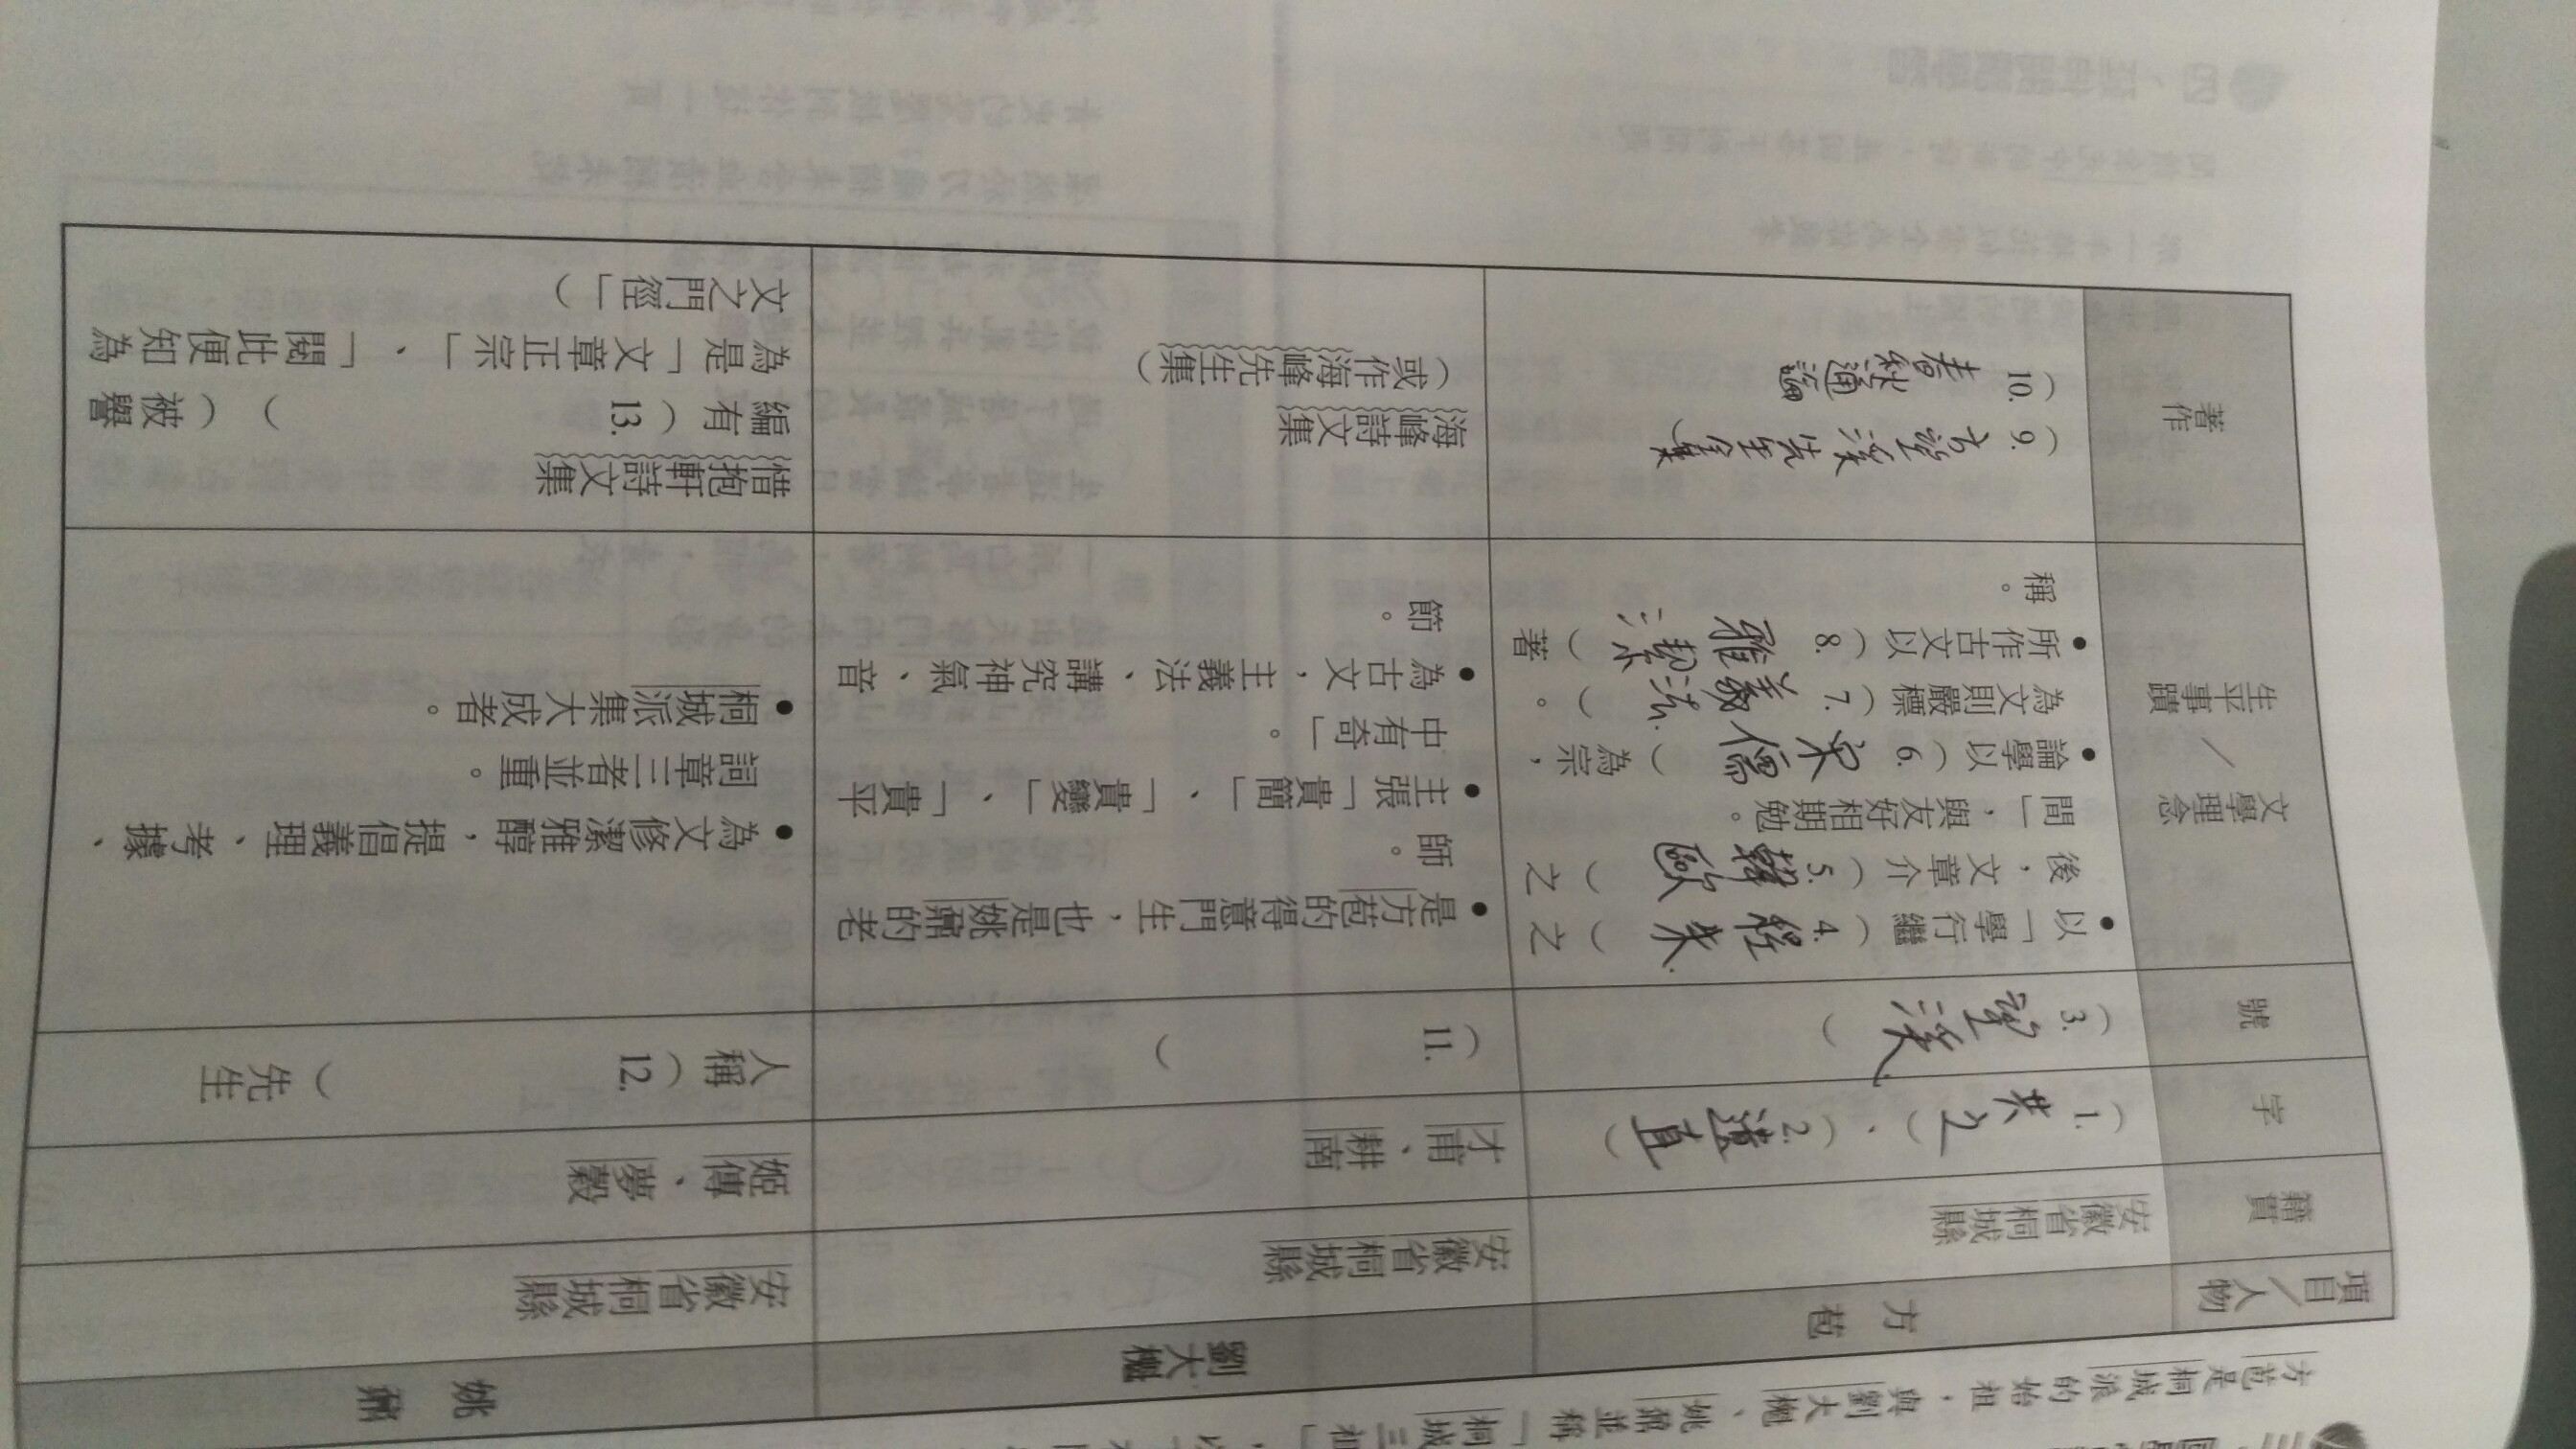 方苞是桐城派的始祖，與劉大櫆、姚鼐並稱「桐城三祖」，
項目／人物
籍貫
字
號
生平事蹟／文學理念
著作
方苞
安徽省桐城縣
(1. 共之)、(2. 遺直)
(3. 望溪)
•以「學行繼(4. 程朱)之
後，文章介(5. 韓歐)之
間」，與友好相期勉。
•論學以(6. 宋儒)為宗，
為文則嚴標(7. 義法)。
•所作古文以(8. 雅潔)著
稱。
(9. 方望溪先生全集)
(10. 春秋通論
劉大櫆
安徽省桐城縣
才甫、耕南
(11. )
•是方苞的得意門生，也是姚鼐的老
師。
•主張「貴簡」、「貴變」、「貴平
中有奇」。
•為古文，主義法、講究神氣、音
節。
海峰詩文集
(或作海峰先生集)
姚鼐
安徽省桐城縣
姬傳、夢穀
人稱(12. )先生
•為文修潔雅醇，提倡義理、考據、
詞章三者並重。
•桐城派集大成者。
惜抱軒詩文集
編有(13. )(被譽
為是「文章正宗」、「閱此便知為
文之門徑」)